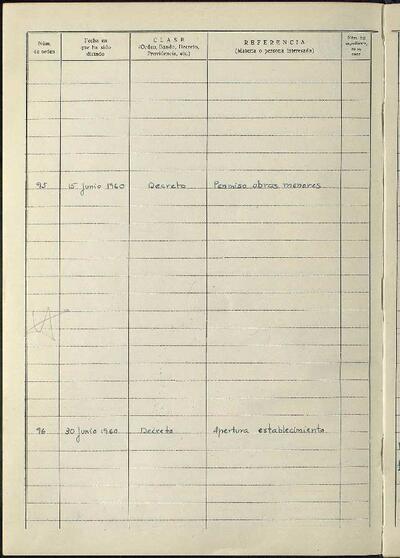 Núm. de orden
Fecha en que ha sido dictado
CLASE (Orden, Bando, Decreto, Providencia, etc.)
REFERENCIA (Materia o persona interesada)
Núm. del expediente, en su caso
95 15 junio 1960 Decreto Permiso obras menores
96 30 junio 1960 Decreto Apertura establecimiento